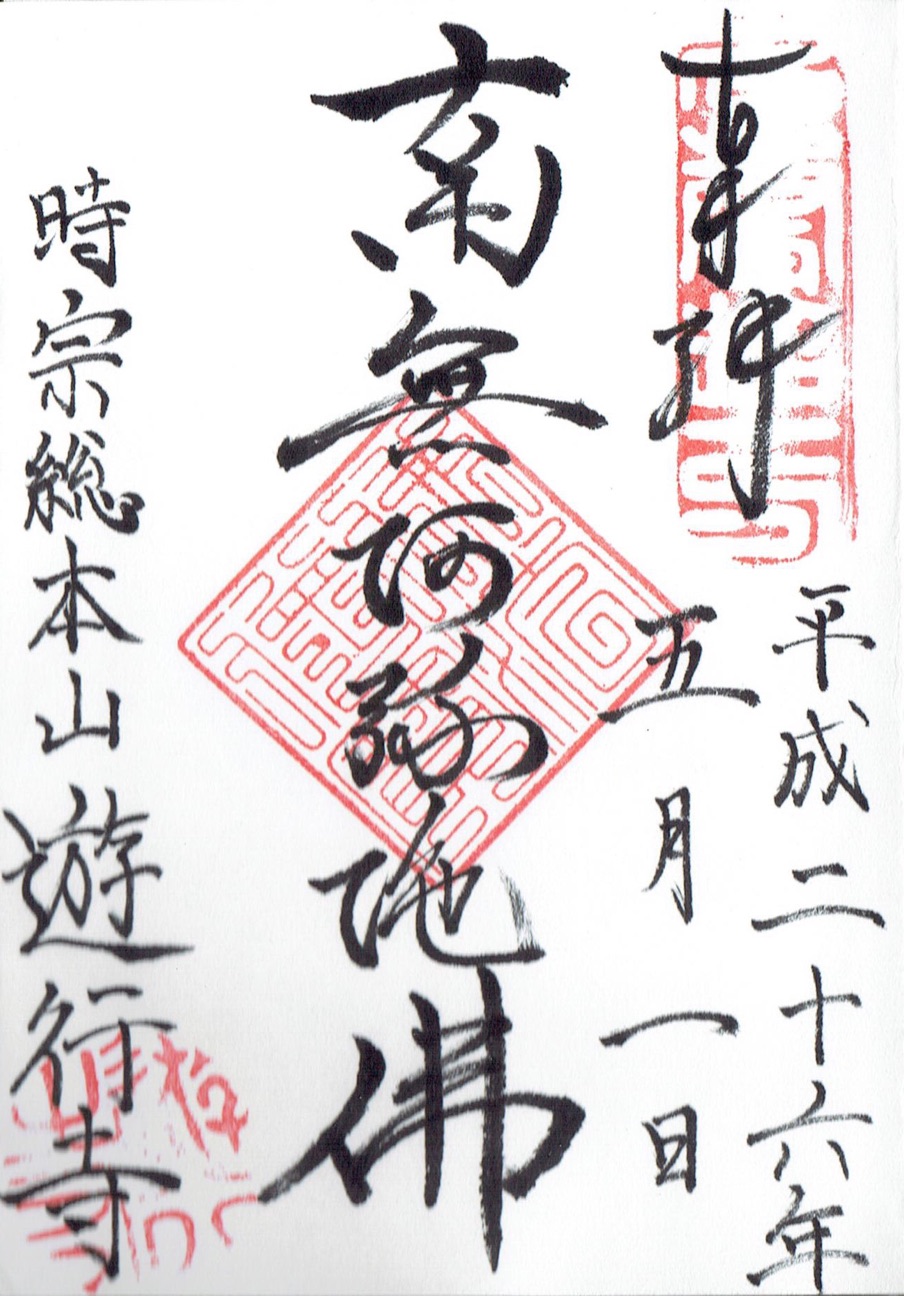 奉拝
平成二十六年
五月一日
南無阿弥陀佛
時宗総本山遊行寺